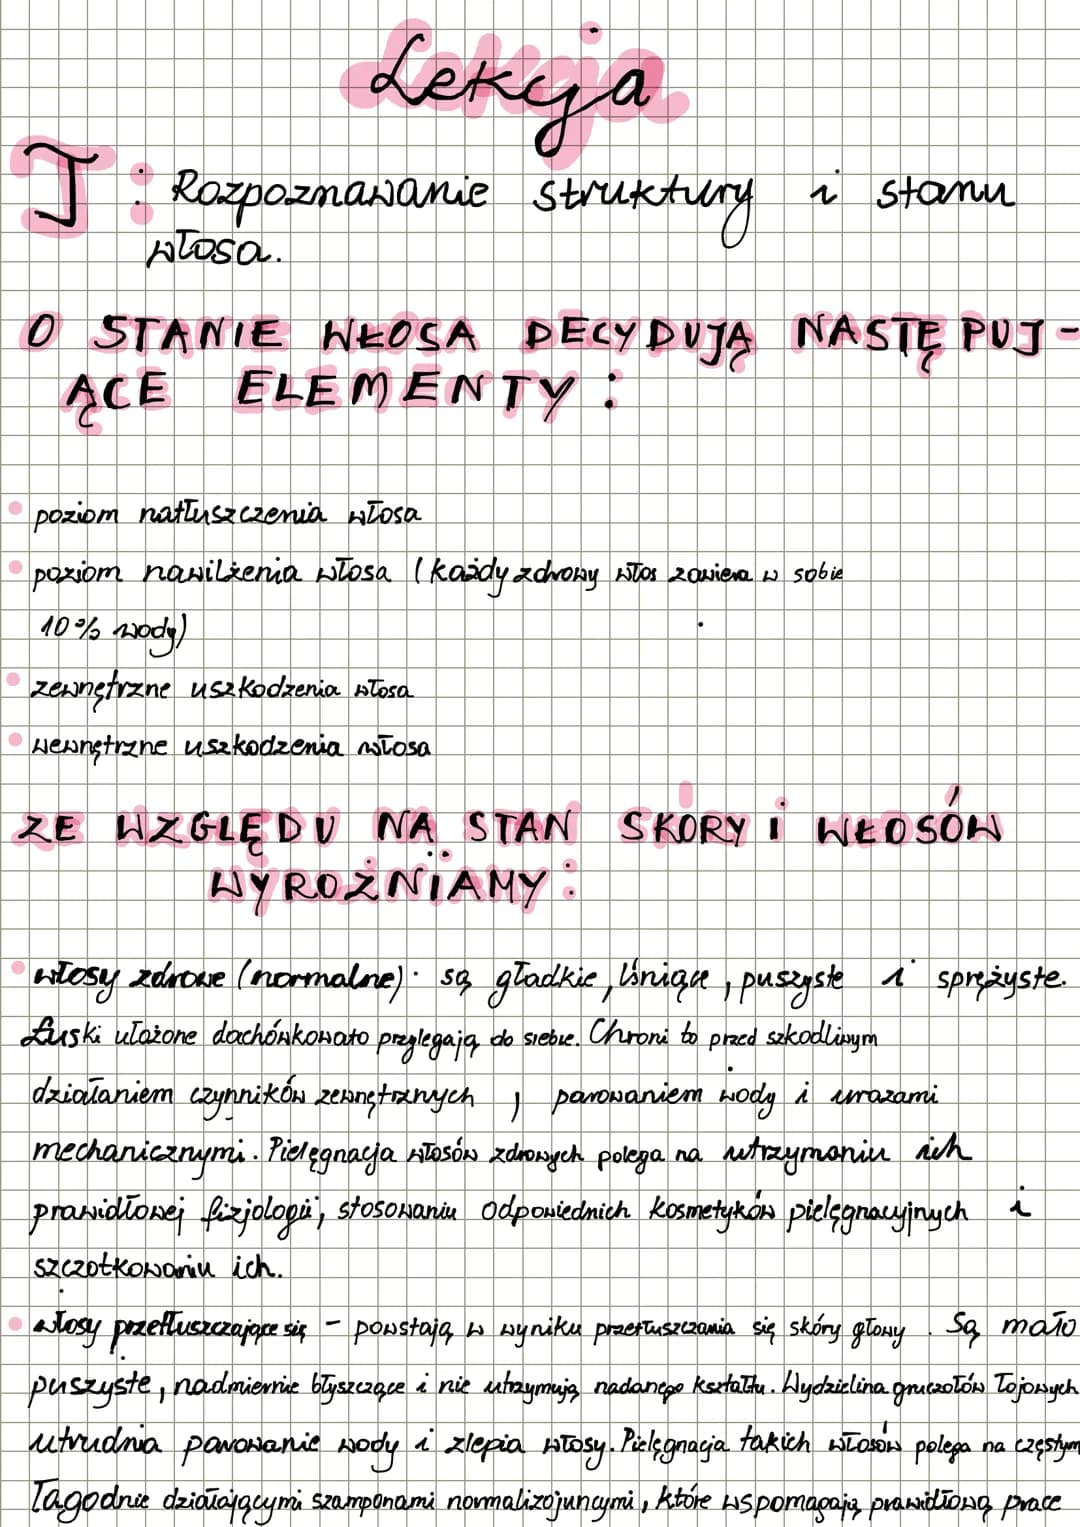 Lekcja
T: Rozpoznawanie struktury i stanu
włosa.
O STANIE WŁOSA DECYDUJĄ NASTĘPUJ-
ĄCE ELEMENTY:
• poziom natłuszczenia włosa
• poziom nawilżenia włosa (każdy zdrowy włos zawiera w sobie
10% wody)
• zewnętrzne uszkodzenia włosa
• wewnętrzne uszkodzenia włosa
ZE WZGLĘDU NA STAN SKÓRY I WŁOSÓW
WYRÓŻNIAMY:
• włosy zdrowe (normalne). są gładkie, lśniące, puszyste i sprężyste.
Łuski ułożone dachówkowato przylegają do siebie. Chroni to przed szkodliwym
działaniem czynników zewnętrznych, parowaniem wody i urazami
mechanicznymi. Pielęgnacja włosów zdrowych polega na utrzymaniu ich
prawidłowej fizjologii, stosowaniu odpowiednich kosmetyków pielęgnacyjnych i
szczotkowaniu ich.
• włosy przetłuszczające się - powstają w wyniku przetłuszczania się skóry głowy. Są mało
puszyste, nadmiernie błyszczące i nie utrzymują nadanego kształtu. Wydzielina gruczołów łojowych
utrudnia parowanie wody i zlepia włosy. Pielęgnacja takich włosów polega na częstym
łagodnie działającymi szamponami normalizojuncymi, które wspomagają prawidłową prace